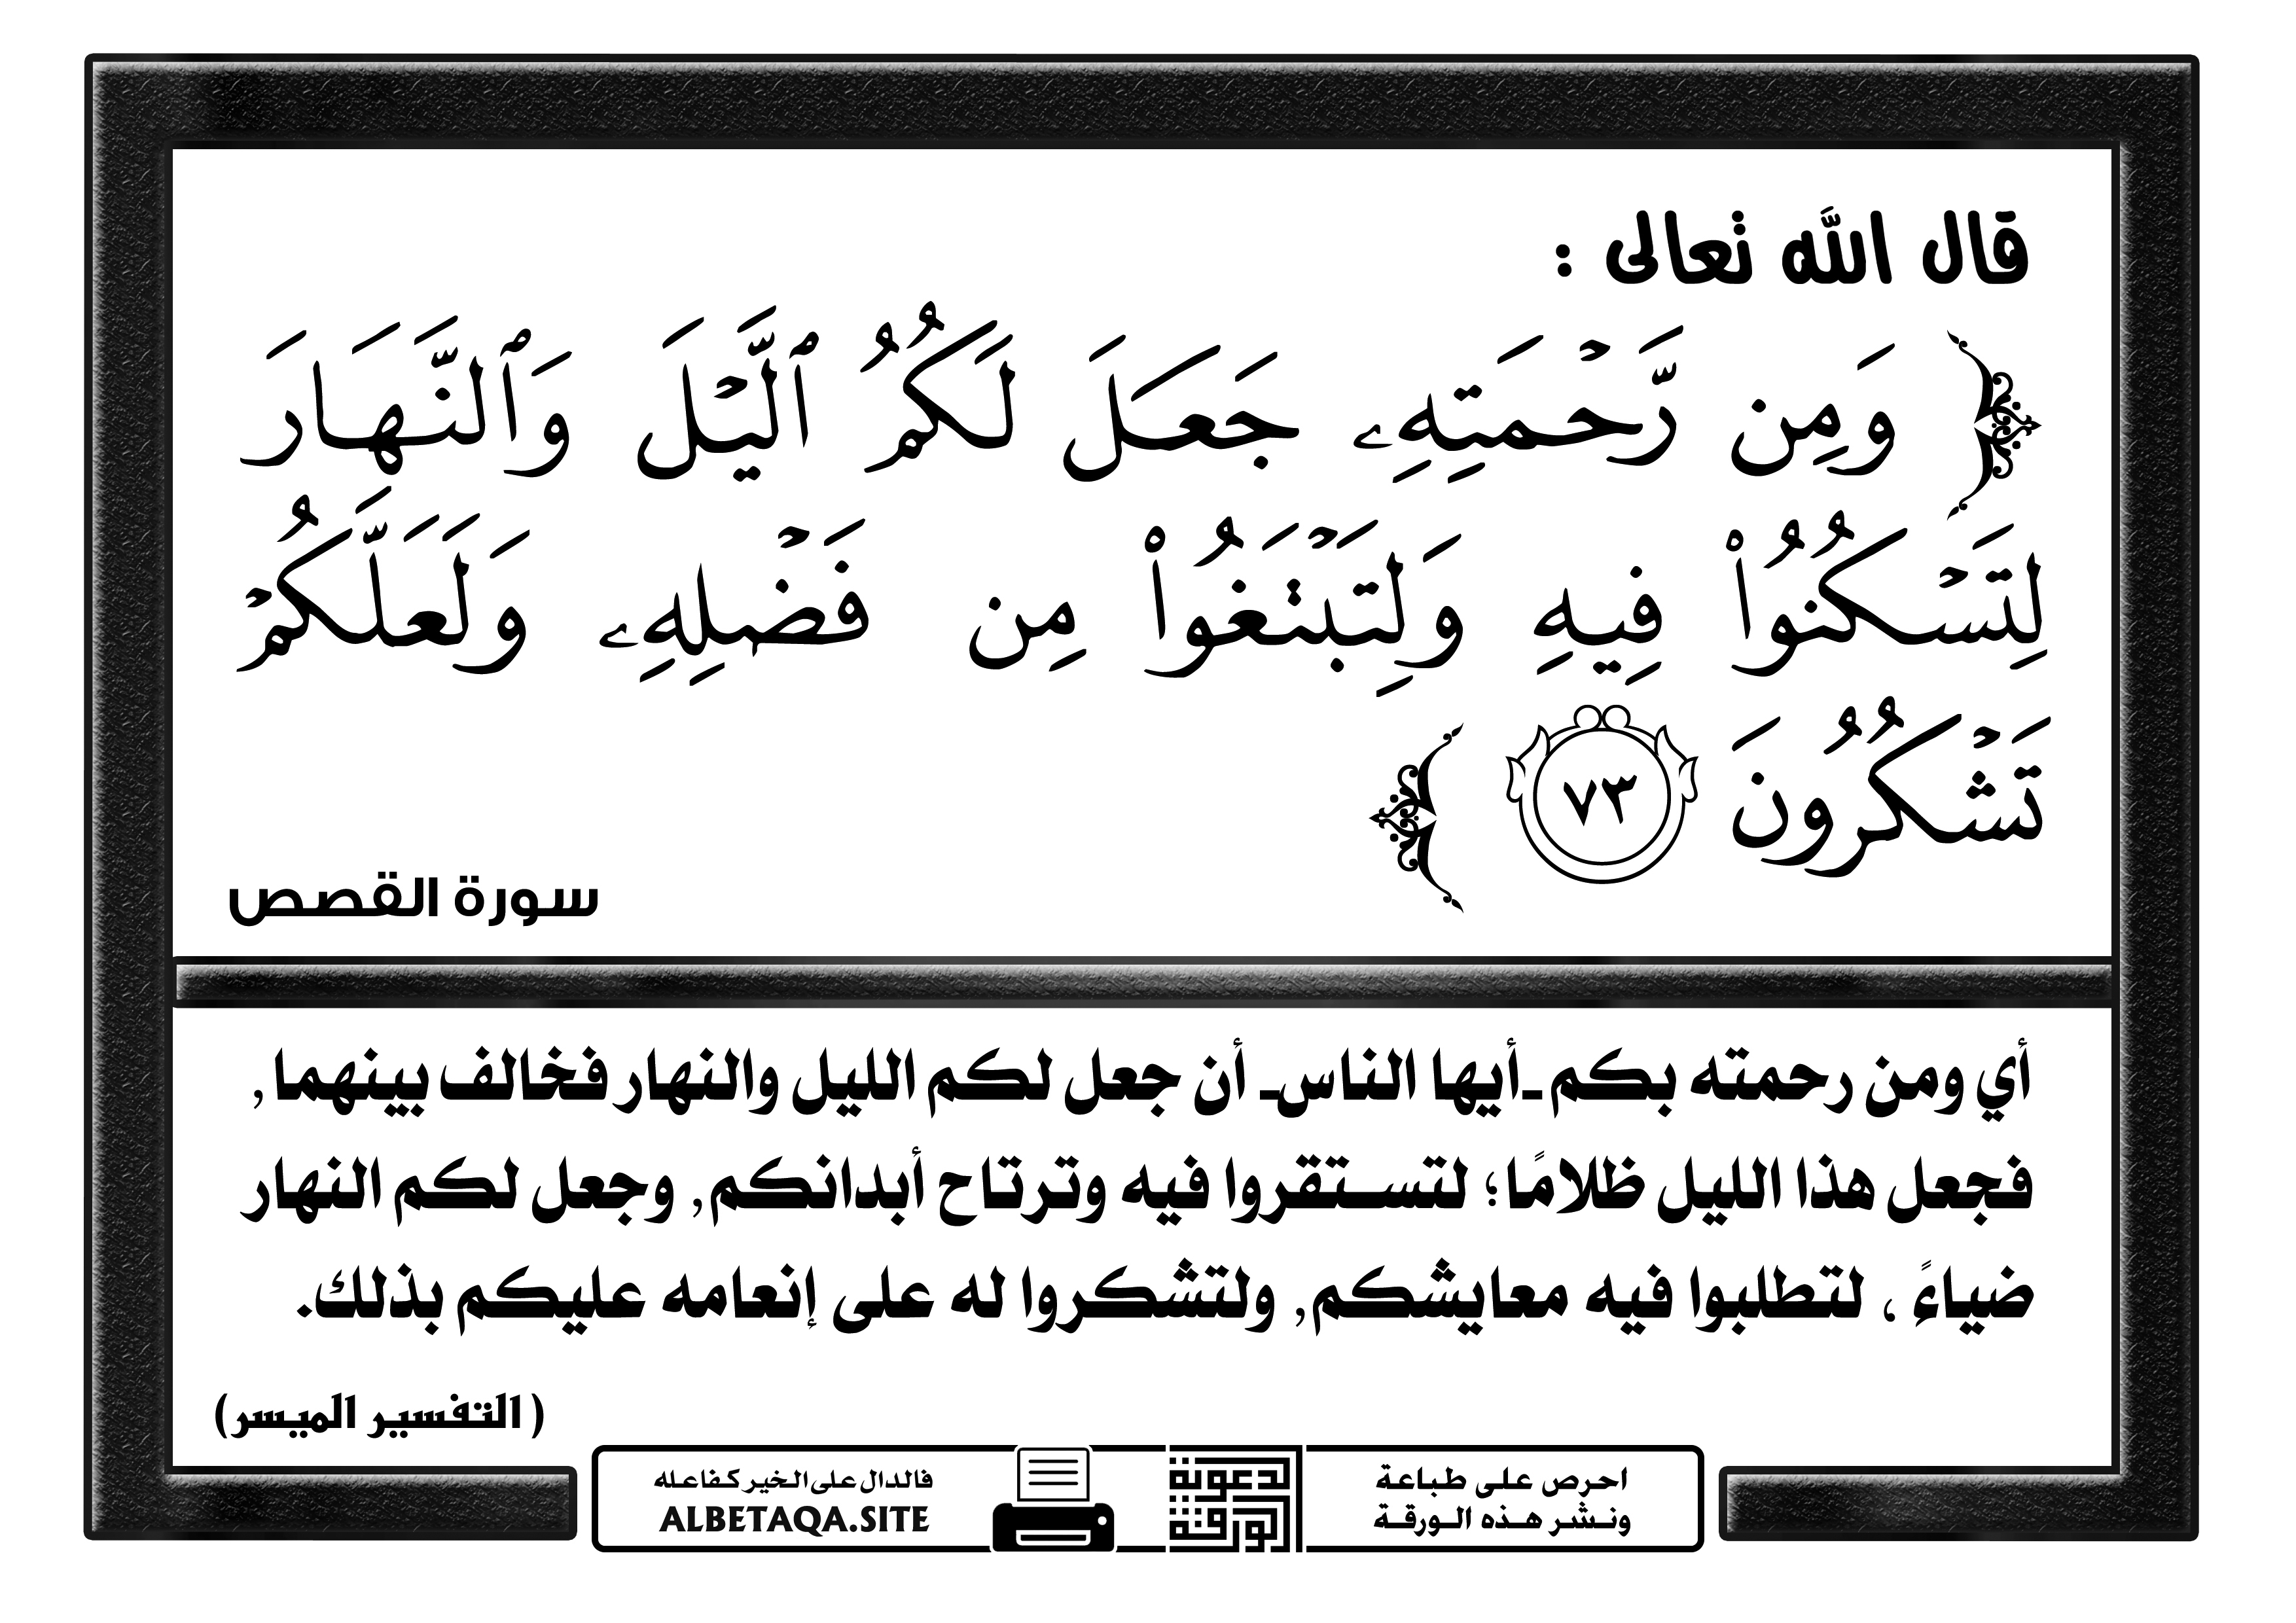 قال الله تعالى :
﴿ وَمِن رَّحْمَتِهِۦ جَعَلَ لَكُمُ ٱلَّيْلَ وَٱلنَّهَارَ
لِتَسْكُنُوا۟ فِيهِ وَلِتَبْتَغُوا۟ مِن فَضْلِهِۦ وَلَعَلَّكُمْ
تَشْكُرُونَ ٧٣ ﴾
سورة القصص
أي ومن رحمته بكم ـأيها الناسـ أن جعل لكم الليل والنهار فخالف بينهما,
فجعل هذا الليل ظلامًا؛ لتستقروا فيه وترتاح أبدانكم, وجعل لكم النهار
ضياءً ، لتطلبوا فيه معايشكم, ولتشكروا له على إنعامه عليكم بذلك.
( التفسير الميسر)
احرص على طباعة
ونشر هذه الورقة
الدعوية
الورقة
فالدال على الخير كفاعله
ALBETAQA.SITE